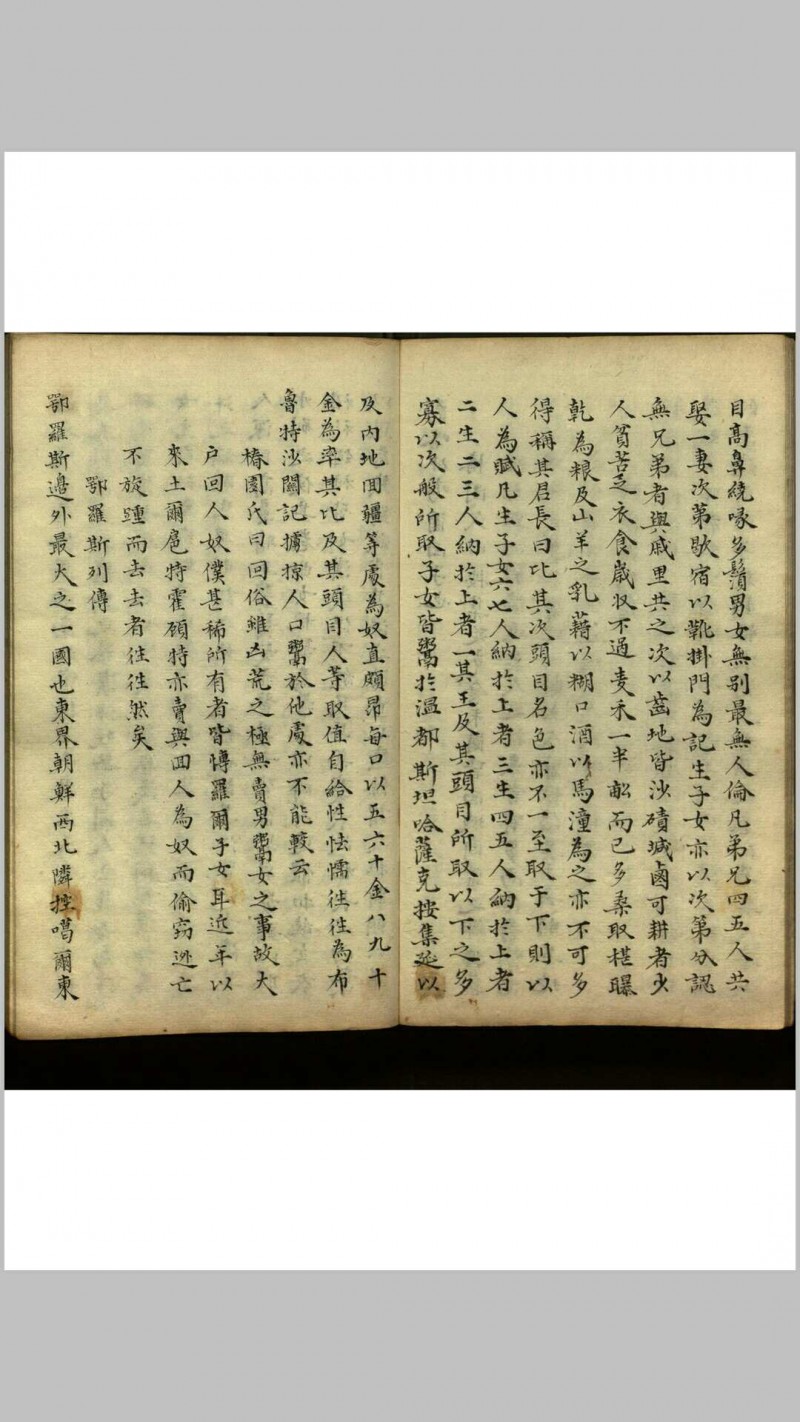 目高鼻繞喙多鬚男女無别最無人倫凡弟兄四五人共
娶一妻次第歇宿以靴掛門為記生子女亦以次第分認
無兄弟者與戚里共之次以齒地皆沙磧堿鹵可耕者少
人貧苦乏衣食歲収不過麦禾一半畝而已多桑取椹曝
乾為粮及山羊之乳藉以糊口酒以馬潼為之亦不可多
得稱其君長曰比其次頭目名色亦不一至取于下則以
人為賦凡生子女六七人納於上者三生四五人納於上者
二生二三人納於上者一其王及其頭目所取以下之多
寡以次般所取子女皆鬻於溫都斯坦哈薩克按集延以
及内地囬疆等處為奴直頗昂每口以五六十金八九十
金為率其比及其頭目人等取值自給性怯懦往往為布
魯特沙關記擄掠人口鬻於他處亦不能較云
椿園氏曰回俗雖凶荒之極無賣男鬻女之事故大
户回人奴僕甚稀所有者皆愽羅爾子女耳近年以
來土爾扈特霍碩特亦賣與囬人為奴而偷窃逃亡
不旋踵而去去者往往然矣
鄂羅斯列傳
鄂羅斯邉外最大之一國也東界朝鮮西北隣控噶爾東